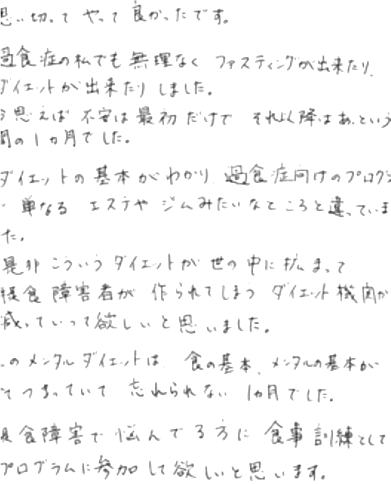 思い切って やって 良かったです。
過食症の私でも 無理なく ファスティングが出来たり、
ダイエットが出来たり しました。
思えば 不安は 最初 だけで それ以降は あっという
間の1ヵ月でした。
ダイエットの 基本 が わかり 過食症向けのプログラ
単なる エステや ジムみたいな ところと 違っていま
た。
是非 こういう ダイエットが 世の中に 広まって
摂食障害者が 作られてしまう ダイエット機関が
減っていって欲しいと思いました。
のメンタルダイエットは 食の基本、メンタルの基本が
つまっていて 忘れられない 1ヵ月でした。
食障害で 悩んでる方に 食事訓練として
プログラムに参加して欲しいと思います。